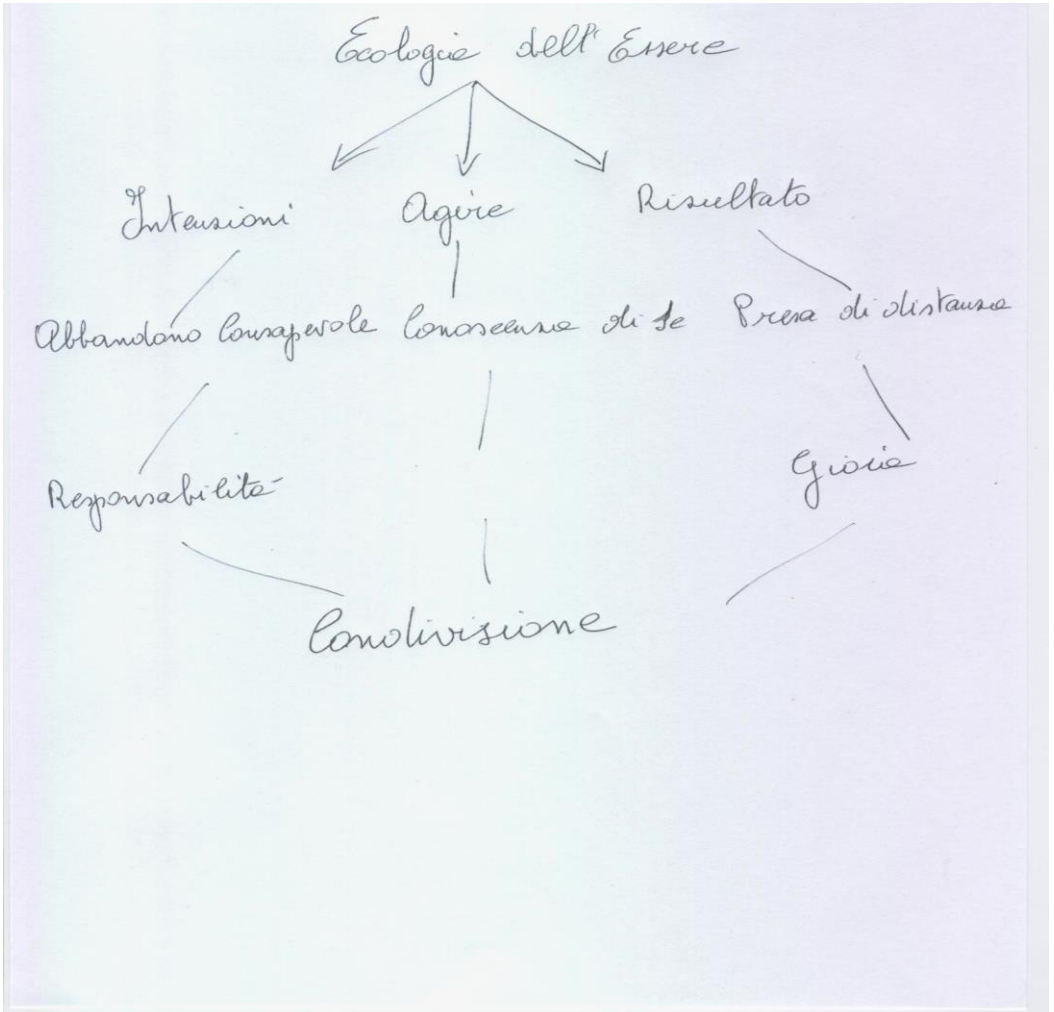 Ecologia dell'Essere
Intenzioni Agire Risultato
Abbandono Consapevole Conoscenza di se Presa di distanza
Responsabilità Gioia
Condivisione